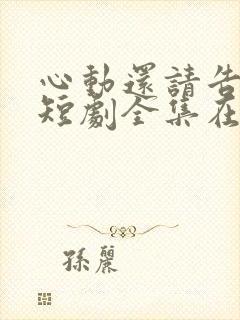 心動還請告
短劇全集在
孫麗